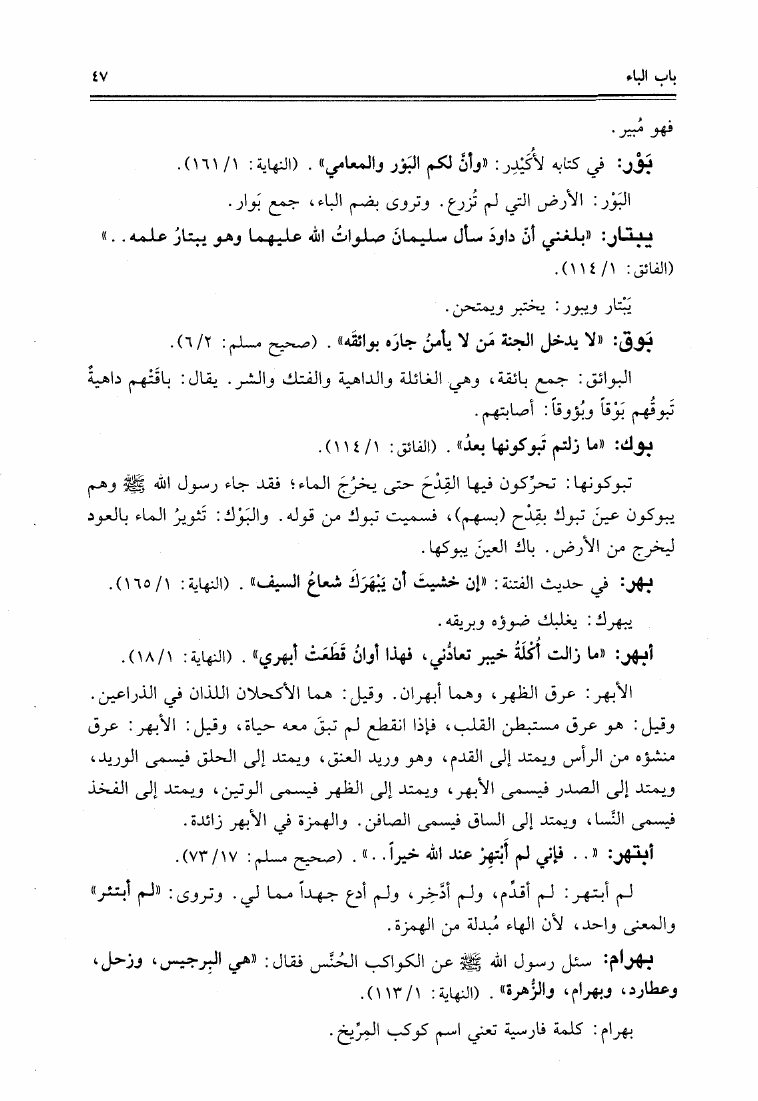 باب الباء ٤٧
فهو مُبير.
بَوْر: في كتابه لأُكَيْدِر: «وأنَّ لكم البَوْر والمعامي». (النهاية: ١/ ١٦١).
البَوْر: الأرض التي لم تُزرع. وتروى بضم الباء، جمع بَوار.
يبتـار: «بلغني أنّ داودَ سأل سليمانَ صلواتُ الله عليهما وهو يبتارُ علمه..»
(الفائق: ١/ ١١٤).
يَبْتار ويبور: يختبر ويمتحن.
بَوق: «لا يدخل الجنة مَن لا يأمنُ جارَه بوائقَه». (صحيح مسلم: ٢/ ٦).
البوائق: جمع بائقة، وهي الغائلة والداهية والفتك والشر. يقال: باقَتْهم داهيةٌ
تَبوقُهم بَوْقاً وبُؤوقاً: أصابتهم.
بوك: «ما زلتم تَبوكونها بعدُ». (الفائق: ١/ ١١٤).
تبوكونها: تحرّكون فيها القِدْحَ حتى يخرُجَ الماء؛ فقد جاء رسول الله ﷺ وهم
يبوكون عينَ تبوك بقِدْح (بسهم)، فسميت تبوك من قوله. والبَوْك: تَثويرُ الماء بالعود
ليخرج من الأرض. باك العينَ يبوكها.
بهر: في حديث الفتنة: «إن خشيتَ أن يَبْهَرَكَ شعاعُ السيف». (النهاية: ١/ ١٦٥).
يبهرك: يغلبك ضوؤه وبريقه.
أبهر: «ما زالت أُكْلَةُ خيبر تعادُّني، فهذا أوانُ قَطَعَتْ أبهري». (النهاية: ١/ ١٨).
الأبهر: عرق الظهر، وهما أبهران. وقيل: هما الأكحلان اللذان في الذراعين.
وقيل: هو عرق مستبطن القلب، فإذا انقطع لم تبقَ معه حياة، وقيل: الأبهر: عرق
منشؤه من الرأس ويمتد إلى القدم، وهو وريد العنق، ويمتد إلى الحلق فيسمى الوريد،
ويمتد إلى الصدر فيسمى الأبهر، ويمتد إلى الظهر فيسمى الوتين، ويمتد إلى الفخذ
فيسمى النَّسا، ويمتد إلى الساق فيسمى الصافن. والهمزة في الأبهر زائدة.
أبتهر: «.. فإني لم أَبْتهِرْ عند الله خيراً..». (صحيح مسلم: ١٧/ ٧٣).
لم أبتهر: لم أقدِّم، ولم أدَّخِر، ولم أدع جهداً مما لي. وتروى: «لم أبتئر»
والمعنى واحد، لأن الهاء مُبدلة من الهمزة.
بهرام: سئل رسول الله ﷺ عن الكواكب الخُنَّس فقال: «هي البِرجيس، وزحل،
وعطارد، وبهرام، والزُّهرة». (النهاية: ١/ ١١٣).
بهرام: كلمة فارسية تعني اسم كوكب المِرِّيخ.